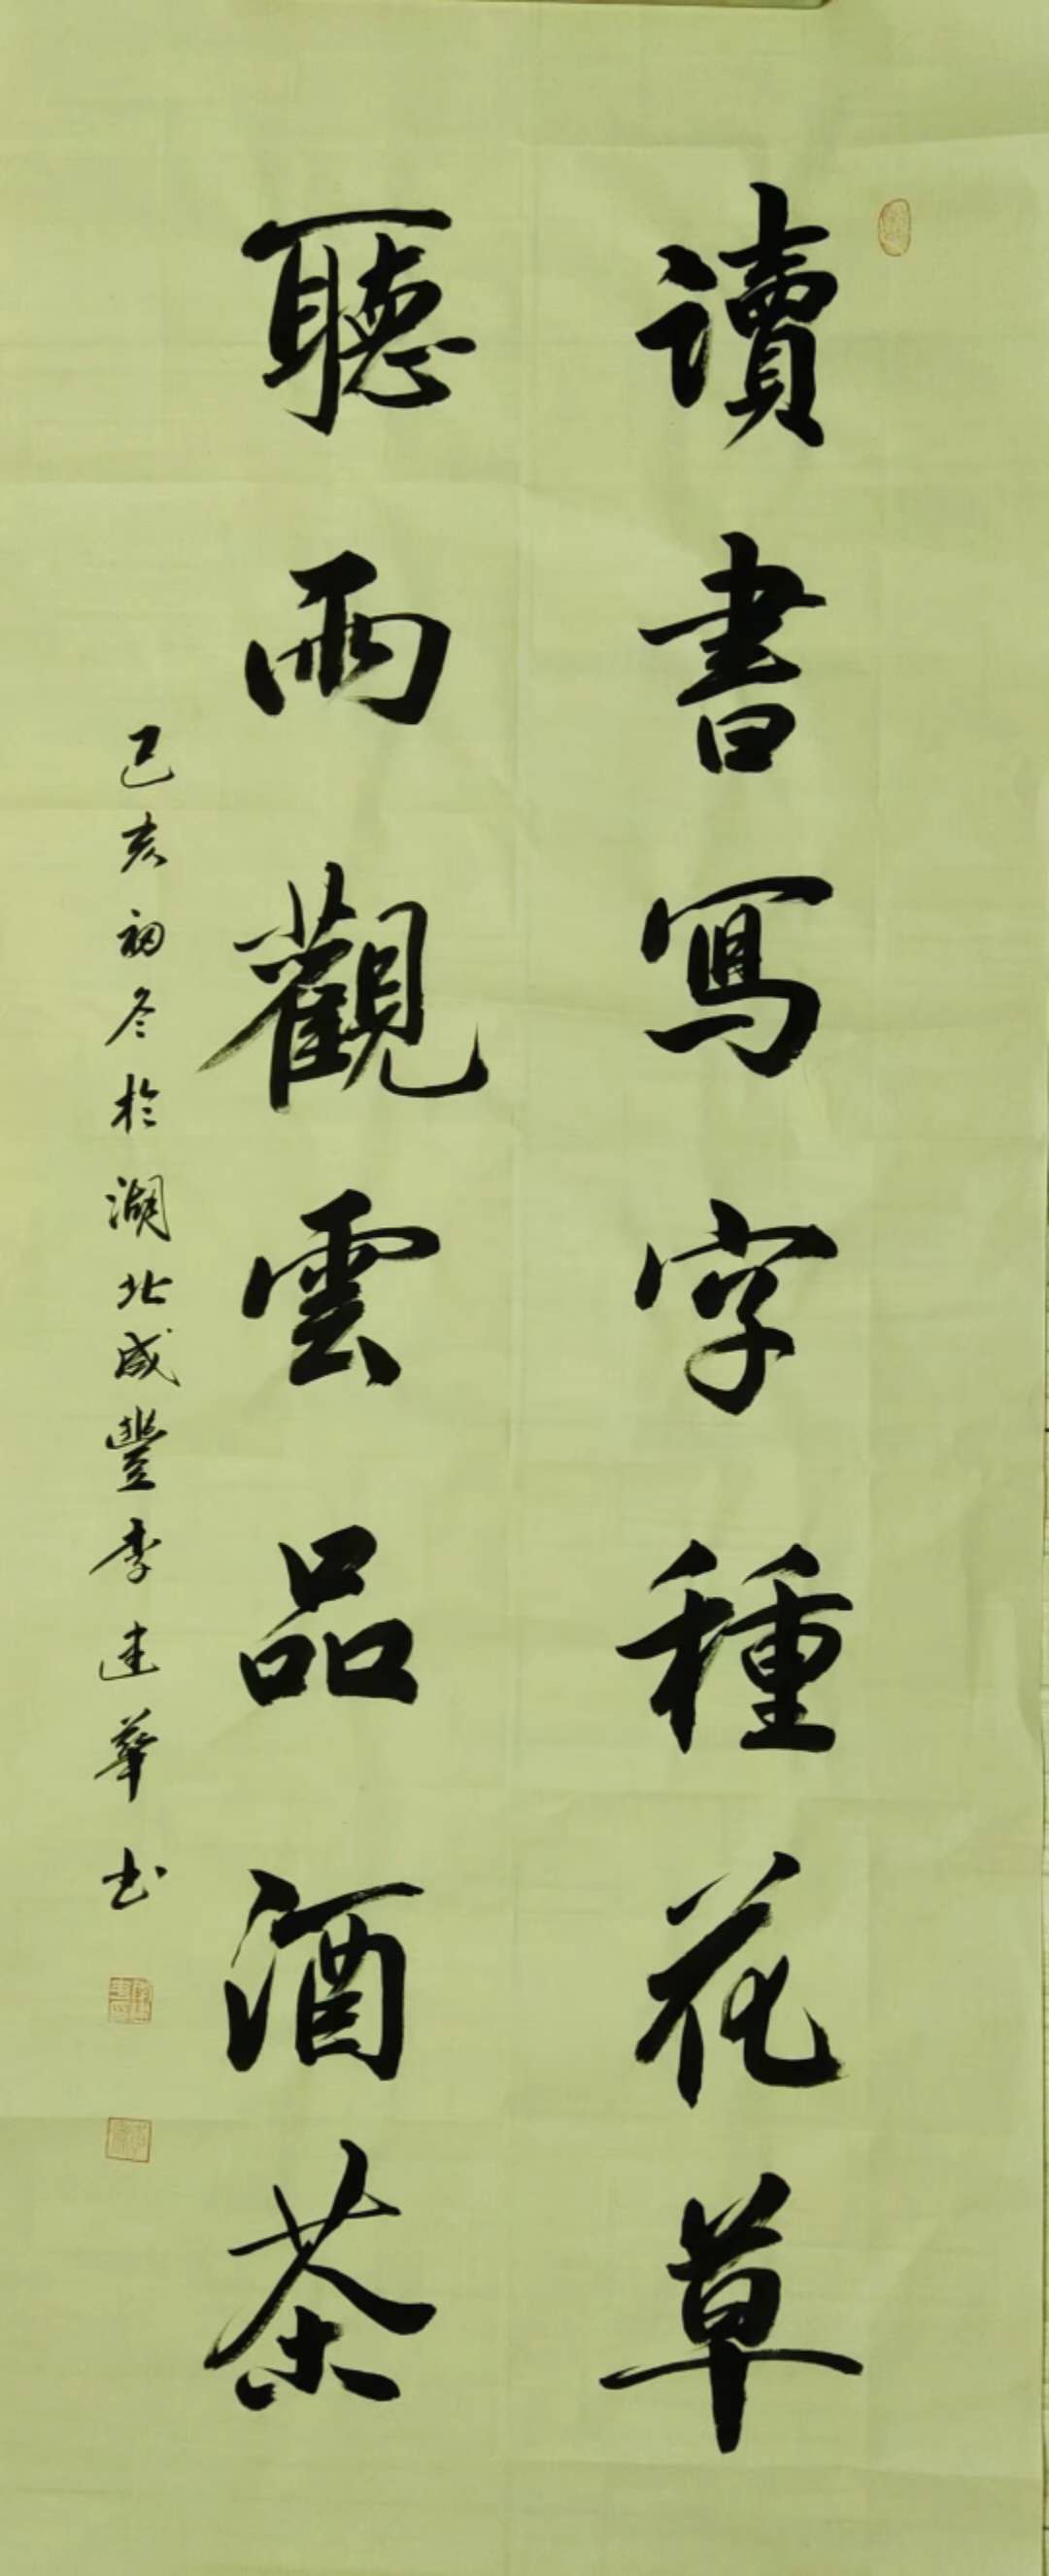 讀書寫字種花草
聽雨觀雲品酒茶
己亥初冬於湖北咸豐李建華书